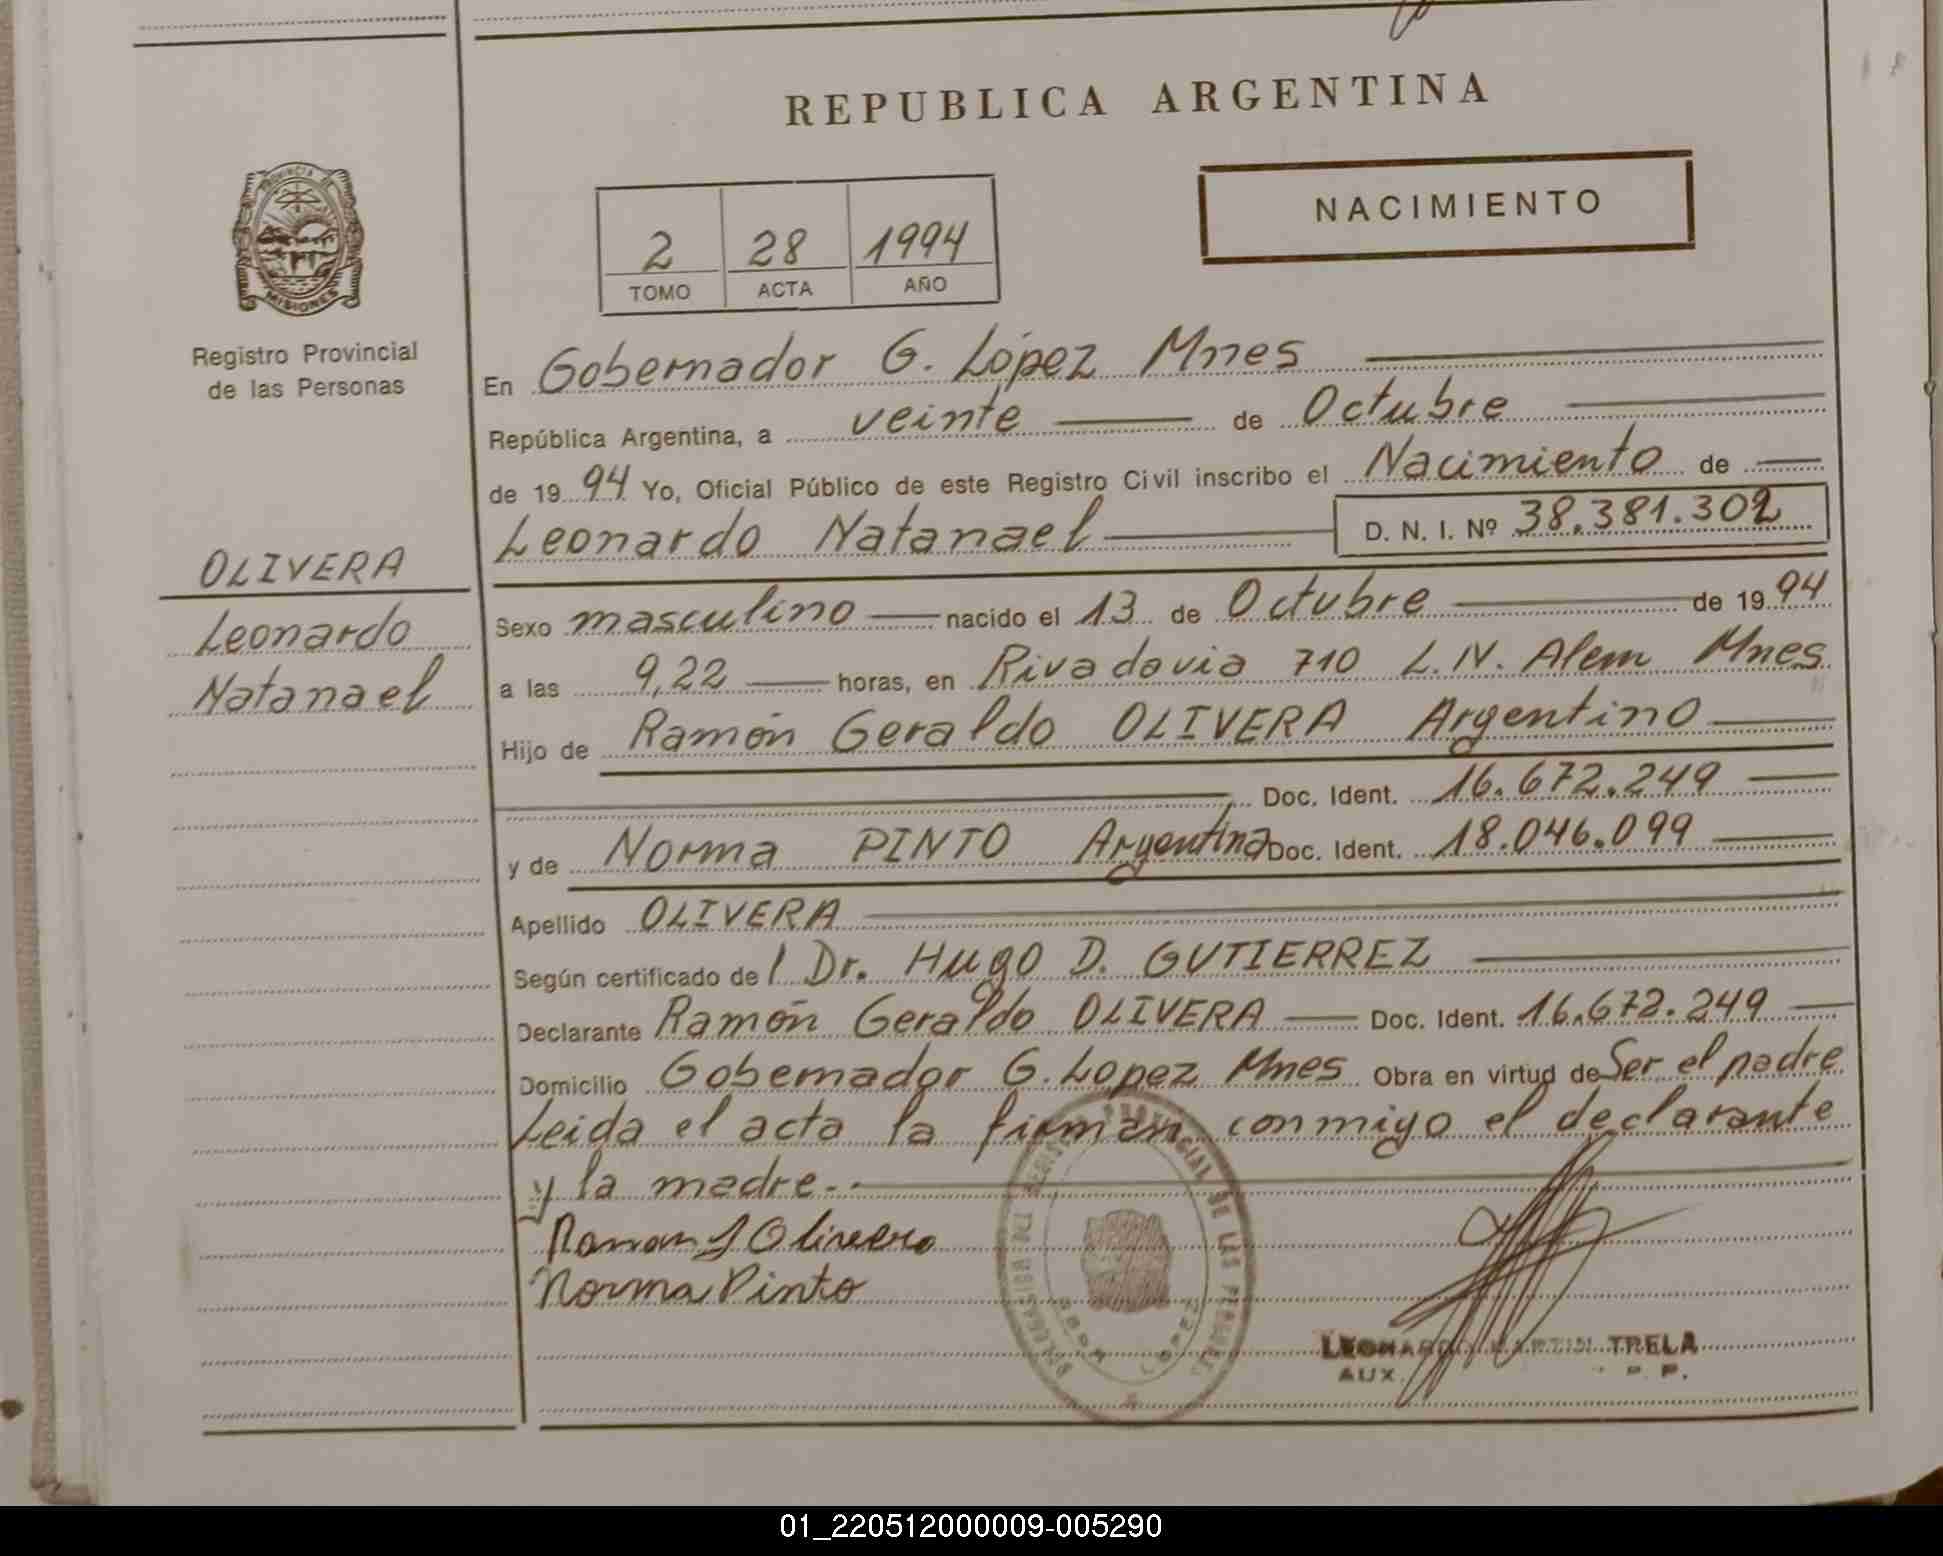 REPUBLICA ARGENTINA
NACIMIENTO
2 28 1994
TOMO ACTA AÑO
PROVINCIA DE
MISIONES
Registro Provincial
de las Personas
OLIVERA
Leonardo
Natanael
En Gobernador G. López Mnes
República Argentina, a veinte de Octubre
de 1994 Yo, Oficial Público de este Registro Civil inscribo el Nacimiento de
Leonardo Natanael D. N. I. Nº 38.381.302
Sexo masculino nacido el 13 de Octubre de 1994
a las 9,22 horas, en Rivadavia 710 L.N. Alem Mnes
Hijo de Ramón Geraldo OLIVERA Argentino
Doc. Ident. 16.672.249
y de Norma PINTO Argentina Doc. Ident. 18.046.099
Apellido OLIVERA
Según certificado del Dr. Hugo D. GUTIERREZ
Declarante Ramón Geraldo OLIVERA Doc. Ident. 16.672.249
Domicilio Gobernador G. Lopez Mnes Obra en virtud de Ser el padre
Leida el acta la firman conmigo el declarante
y la madre..
Ramon G Olivera
Norma Pinto
DELEGACION DEL REGISTRO PROVINCIAL DE LAS PERSONAS
GBDR. LOPEZ
LEONARDO MARTIN TRELA
AUX. P. P.
01_220512000009-005290